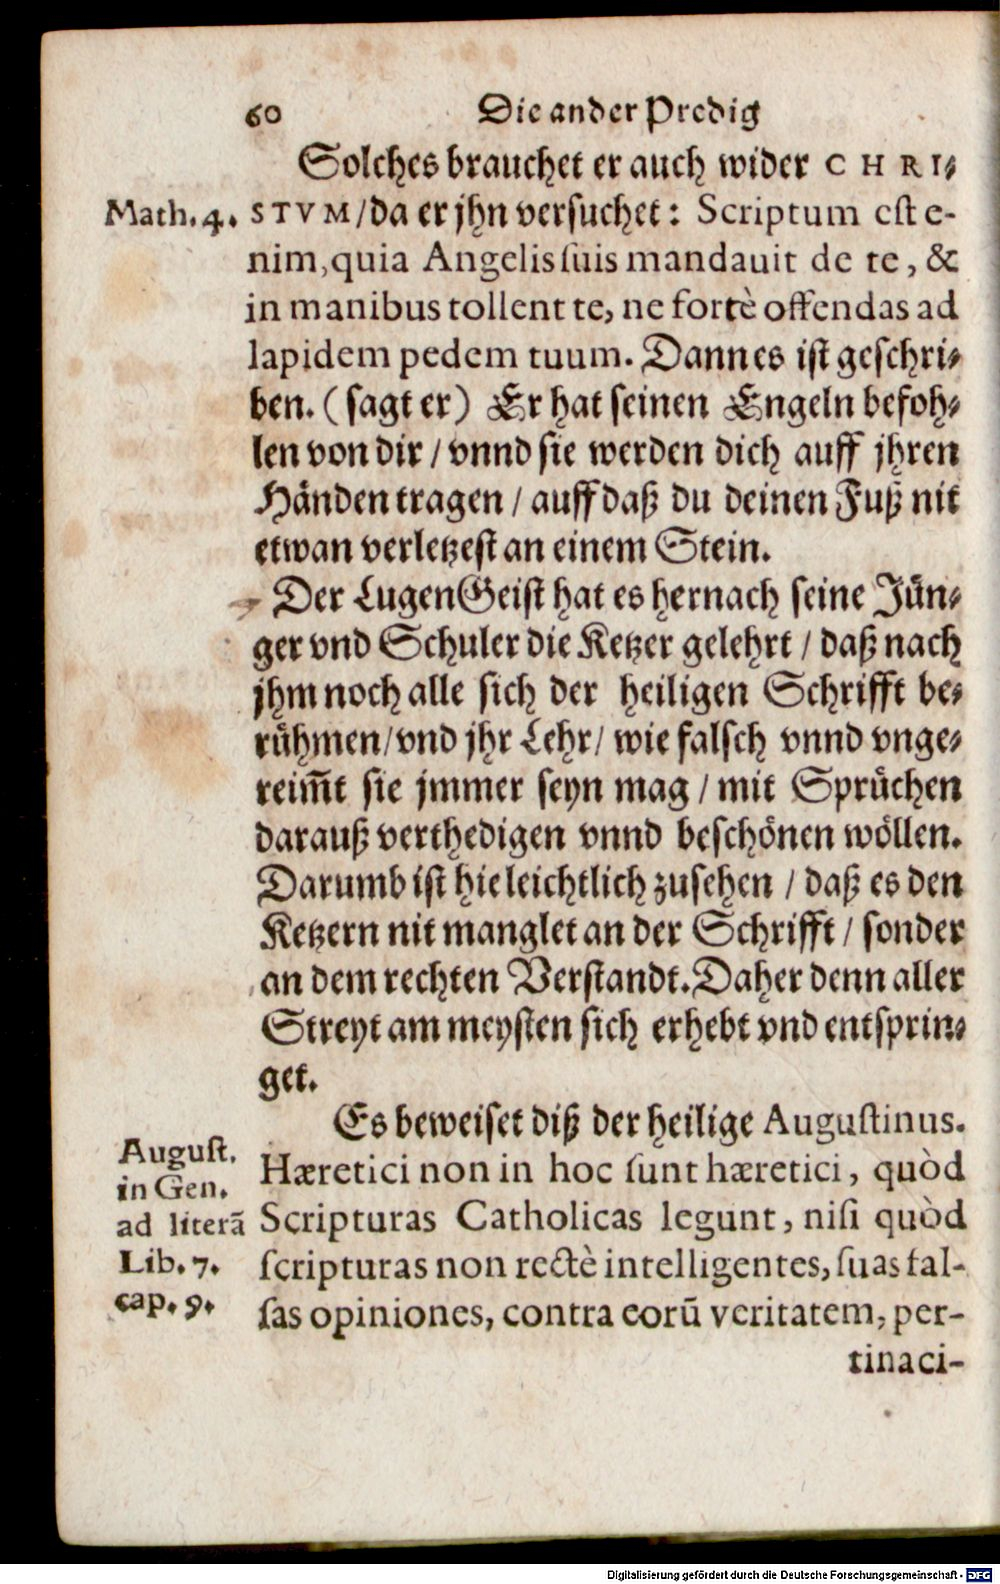 60 Die ander Predig
Solches brauchet er auch wider CHRI-
Math. 4. STVM/da er jhn versuchet: Scriptum est e-
nim, quia Angelis suis mandauit de te, &
in manibus tollent te, ne fortè offendas ad
lapidem pedem tuum. Dann es ist geschri-
ben. (sagt er) Er hat seinen Engeln befoh-
len von dir / vnnd sie werden dich auff jhren
Händen tragen / auff daß du deinen Fuß nit
etwan verletzest an einem Stein.
Der Lugen Geist hat es hernach seine Jün-
ger vnd Schuler die Ketzer gelehrt / daß nach
jhm noch alle sich der heiligen Schrifft be-
rühmen/vnd jhr Lehr/ wie falsch vnnd vnge-
reim̃t sie jmmer seyn mag / mit Sprüchen
darauß verthedigen vnnd beschönen wöllen.
Darumb ist hie leichtlich zusehen / daß es den
Ketzern nit manglet an der Schrifft / sonder
an dem rechten Verstandt. Daher denn aller
Streyt am meysten sich erhebt vnd entsprin-
get.
Es beweiset diß der heilige Augustinus.
August.
in Gen.
ad literā
Lib. 7.
cap. 9.
Hæretici non in hoc sunt hæretici, quòd
Scripturas Catholicas legunt, nisi quòd
scripturas non rectè intelligentes, suas fal-
sas opiniones, contra eorū veritatem, per-
tinaci-
Digitalisierung gefördert durch die Deutsche Forschungsgemeinschaft - DFG